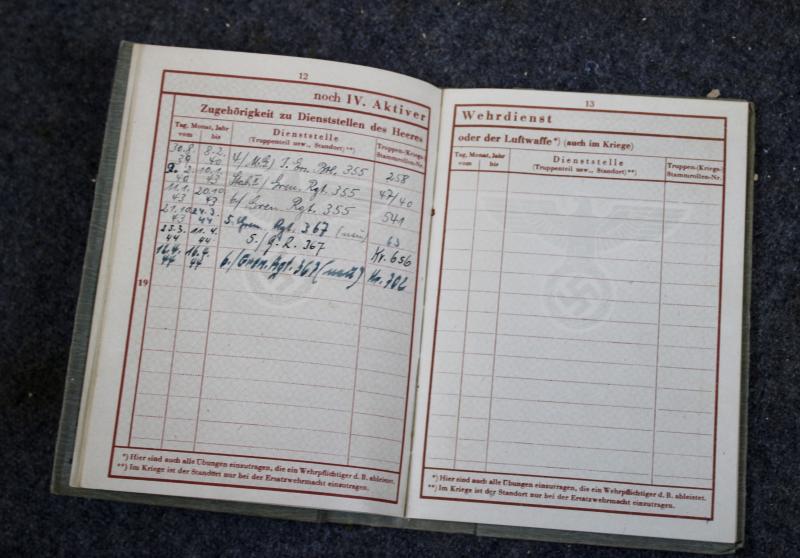 12
noch IV. Aktiver
Zugehörigkeit zu Dienststellen des Heeres
Tag, Monat, Jahr
vom bis
Dienststelle
(Truppenteil usw., Standort)**)
Truppen-(Kriegs-)
Stammrollen-Nr.
30.8. 8.2.
39 40 355 258
9.2. 10.1.
40 43 Gren. Rgt. 355 47/40
11.1. 20.10
43 43 6/ Gren. Rgt. 355 541
21.10 24.3.
43 44 5. Gren. Rgt. 367 (neu) 63
25.3. 11.4.
44 44 5./ G. R. 367 Kr. 656
12.4. 16.4.
44 44 6./Gren. Rgt. 367 (neu) Kr. 702
19
*) Hier sind auch alle Übungen einzutragen, die ein Wehrpflichtiger d. B. ableistet.
**) Im Kriege ist der Standort nur bei der Ersatzwehrmacht einzutragen.
13
Wehrdienst
oder der Luftwaffe*) (auch im Kriege)
Tag, Monat, Jahr
vom bis
Dienststelle
(Truppenteil usw., Standort)**)
Truppen-(Kriegs-)
Stammrollen-Nr.
*) Hier sind auch alle Übungen einzutragen, die ein Wehrpflichtiger d. B. ableistet.
**) Im Kriege ist der Standort nur bei der Ersatzwehrmacht einzutragen.